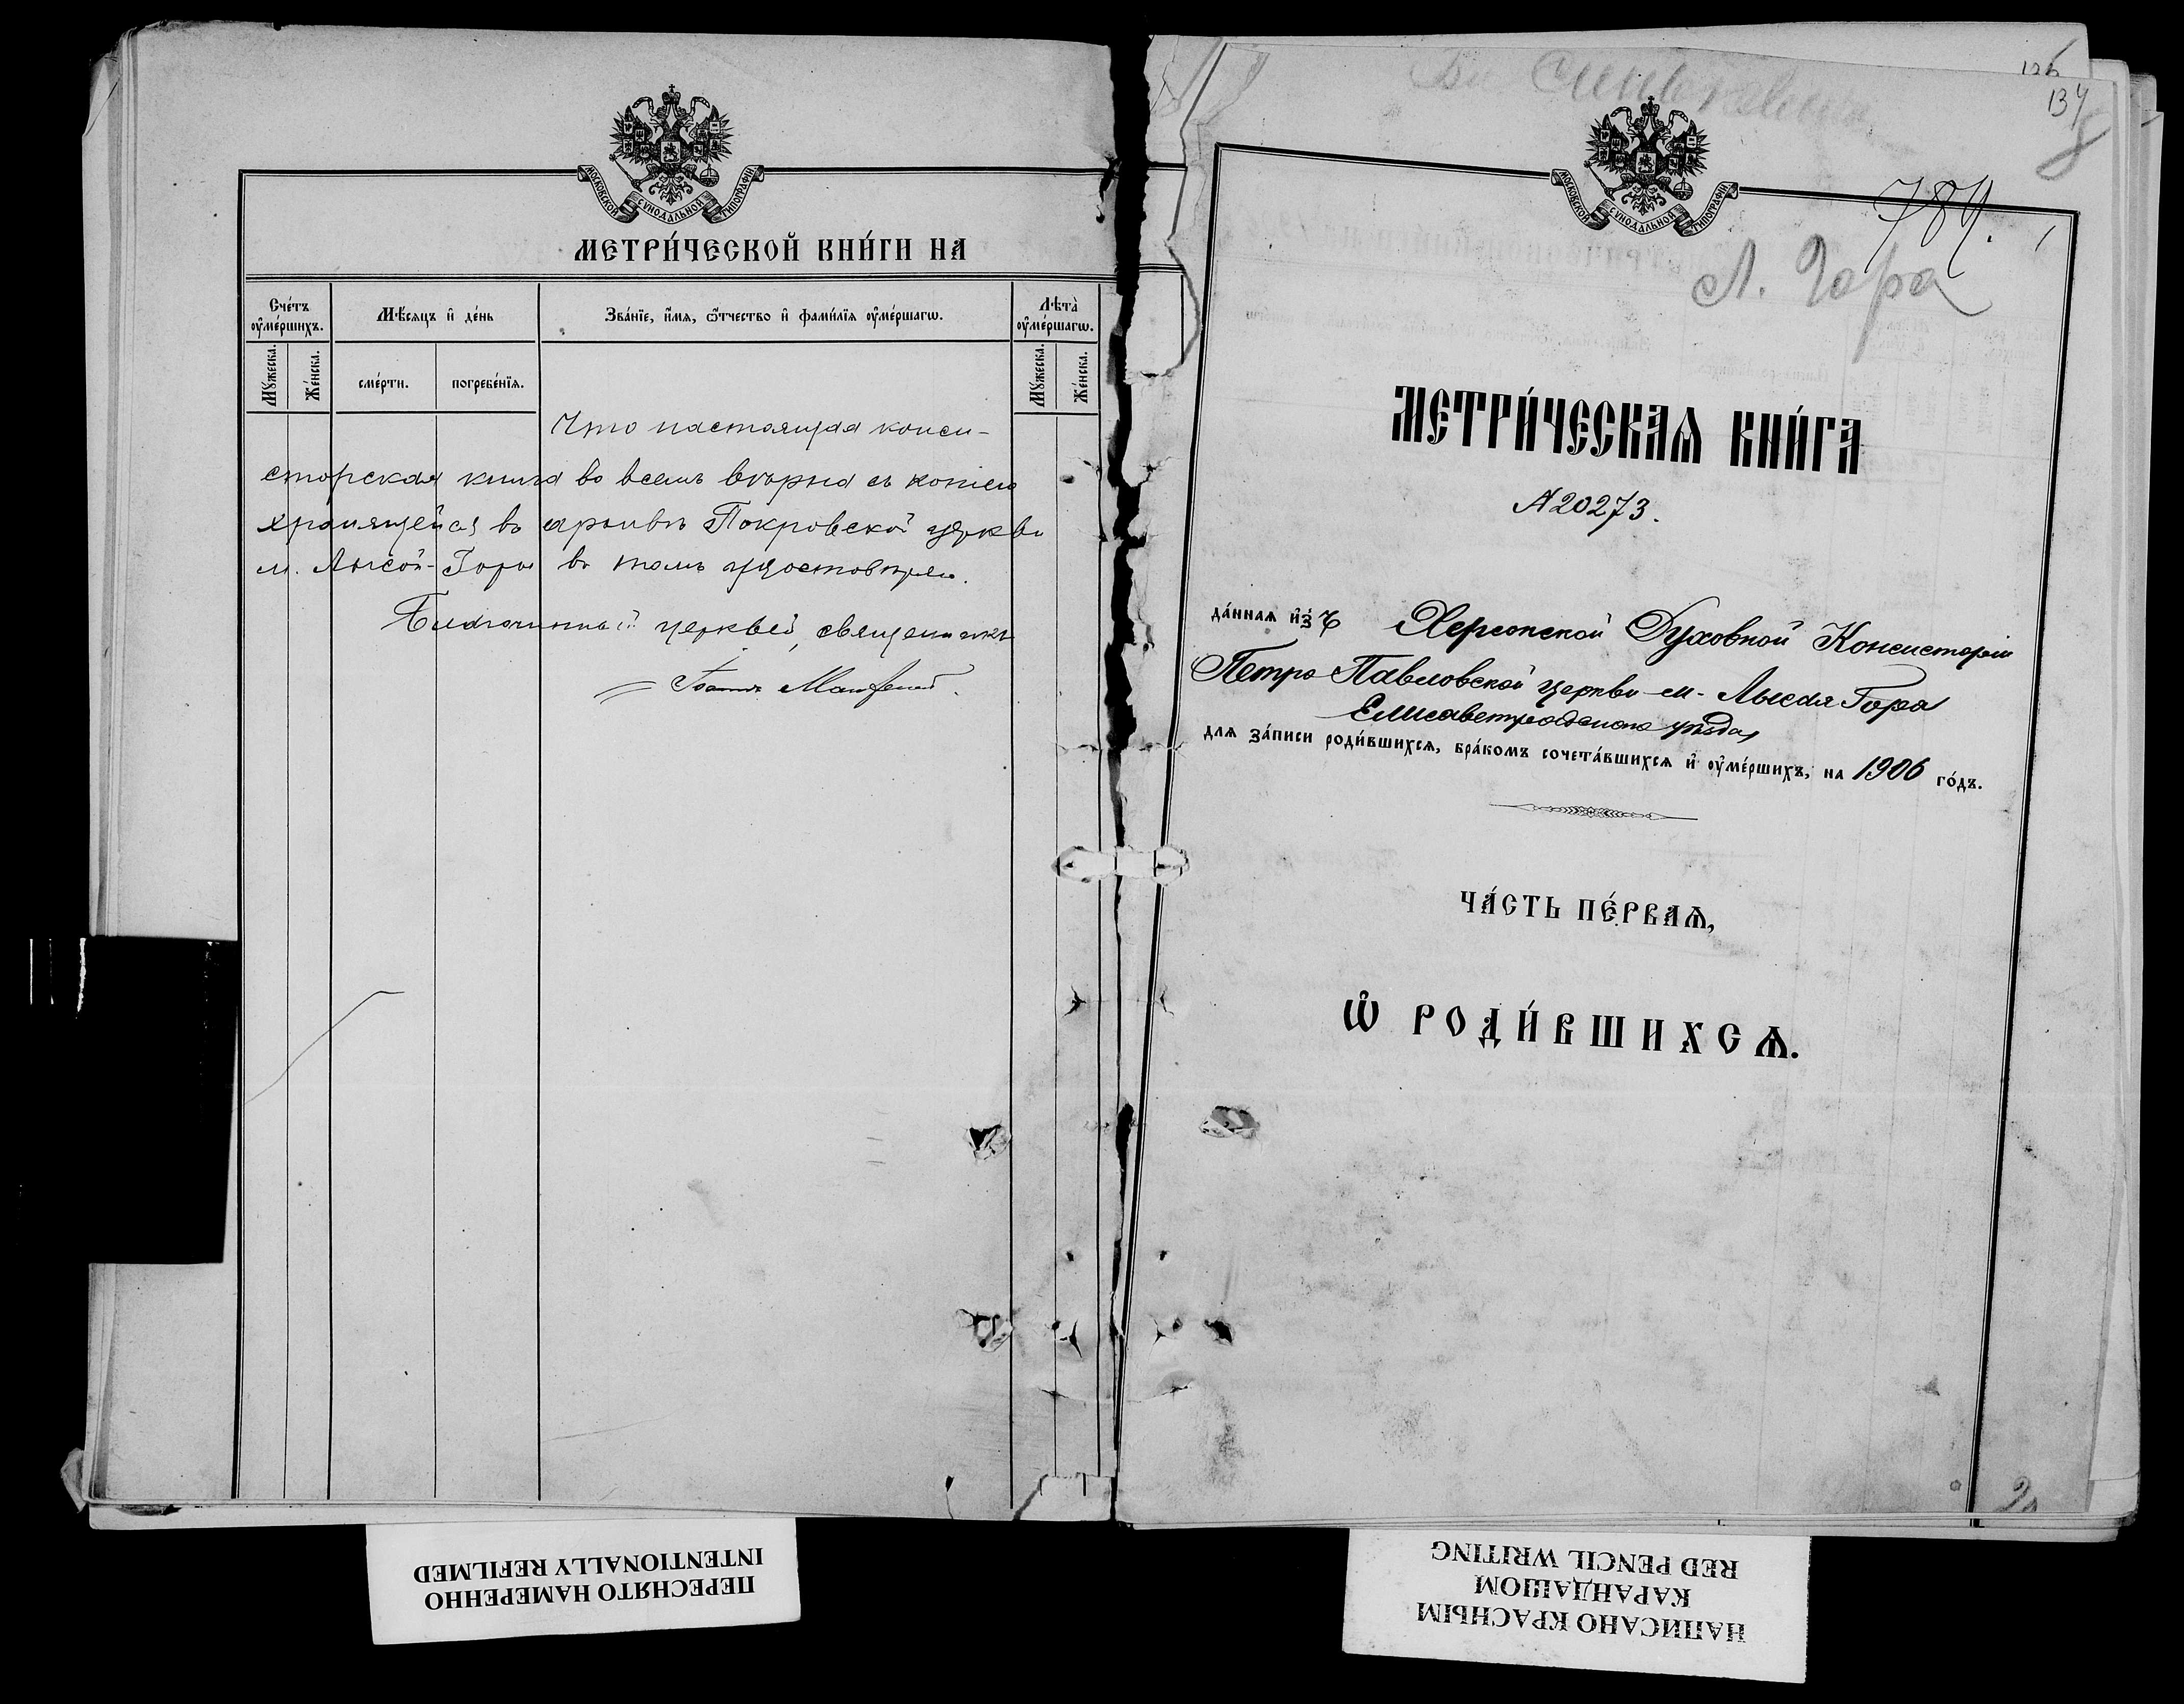 МОСКОВСКОЙ СУНОДАЛЬНОЙ ТИПОГРАФІИ
МЕТРИ́ЧЕСКОЙ КНИ́ГИ НА
Сче́тъ оу҆ме́ршихъ.
Мѣ́сяцъ и҆ де́нь
Зва́нїе, и҆́мя, ѻ҆́тчество и҆ фами́лїя оу҆ме́ршагѡ.
Лѣта̀ оу҆ме́ршагѡ.
Мꙋ́жеска.
Же́нска.
сме́рти.
погребе́нїѧ.
Мꙋ́жеска.
Же́нска.
Что настоящая конси-
сторская книга во всемъ вѣрна съ копіею
хранящейся въ архивѣ Покровской церкви
м. Лысой-Горы въ томъ удостовѣряю.
Благочинный церквей, священникъ
Іоаннъ
126
134
МОСКОВСКОЙ СУНОДАЛЬНОЙ ТИПОГРАФІИ
784.
Л. Гора
МЕТРИ́ЧЕСКАѦ КНИ́ГА
№ 20273.
да́ннаѧ и҆зъ Херсонской Духовной Консисторіи
Петро-Павловской церкви м. Лысая Гора
Елисаветградскаго уѣзда
для за́писи роди́вшихсѧ, бра́комъ сочета́вшихсѧ и҆ оу҆ме́ршихъ, на 1906 го́дъ.
ЧА́СТЬ ПЕ́РВАѦ,
Ѡ҆ РОДИ́ВШИХСѦ.
ПЕРЕСНЯТО НАМЕРЕННО
INTENTIONALLY REFILMED
НАПИСАНО КРАСНЫМ
КАРАНДАШОМ
RED PENCIL WRITING